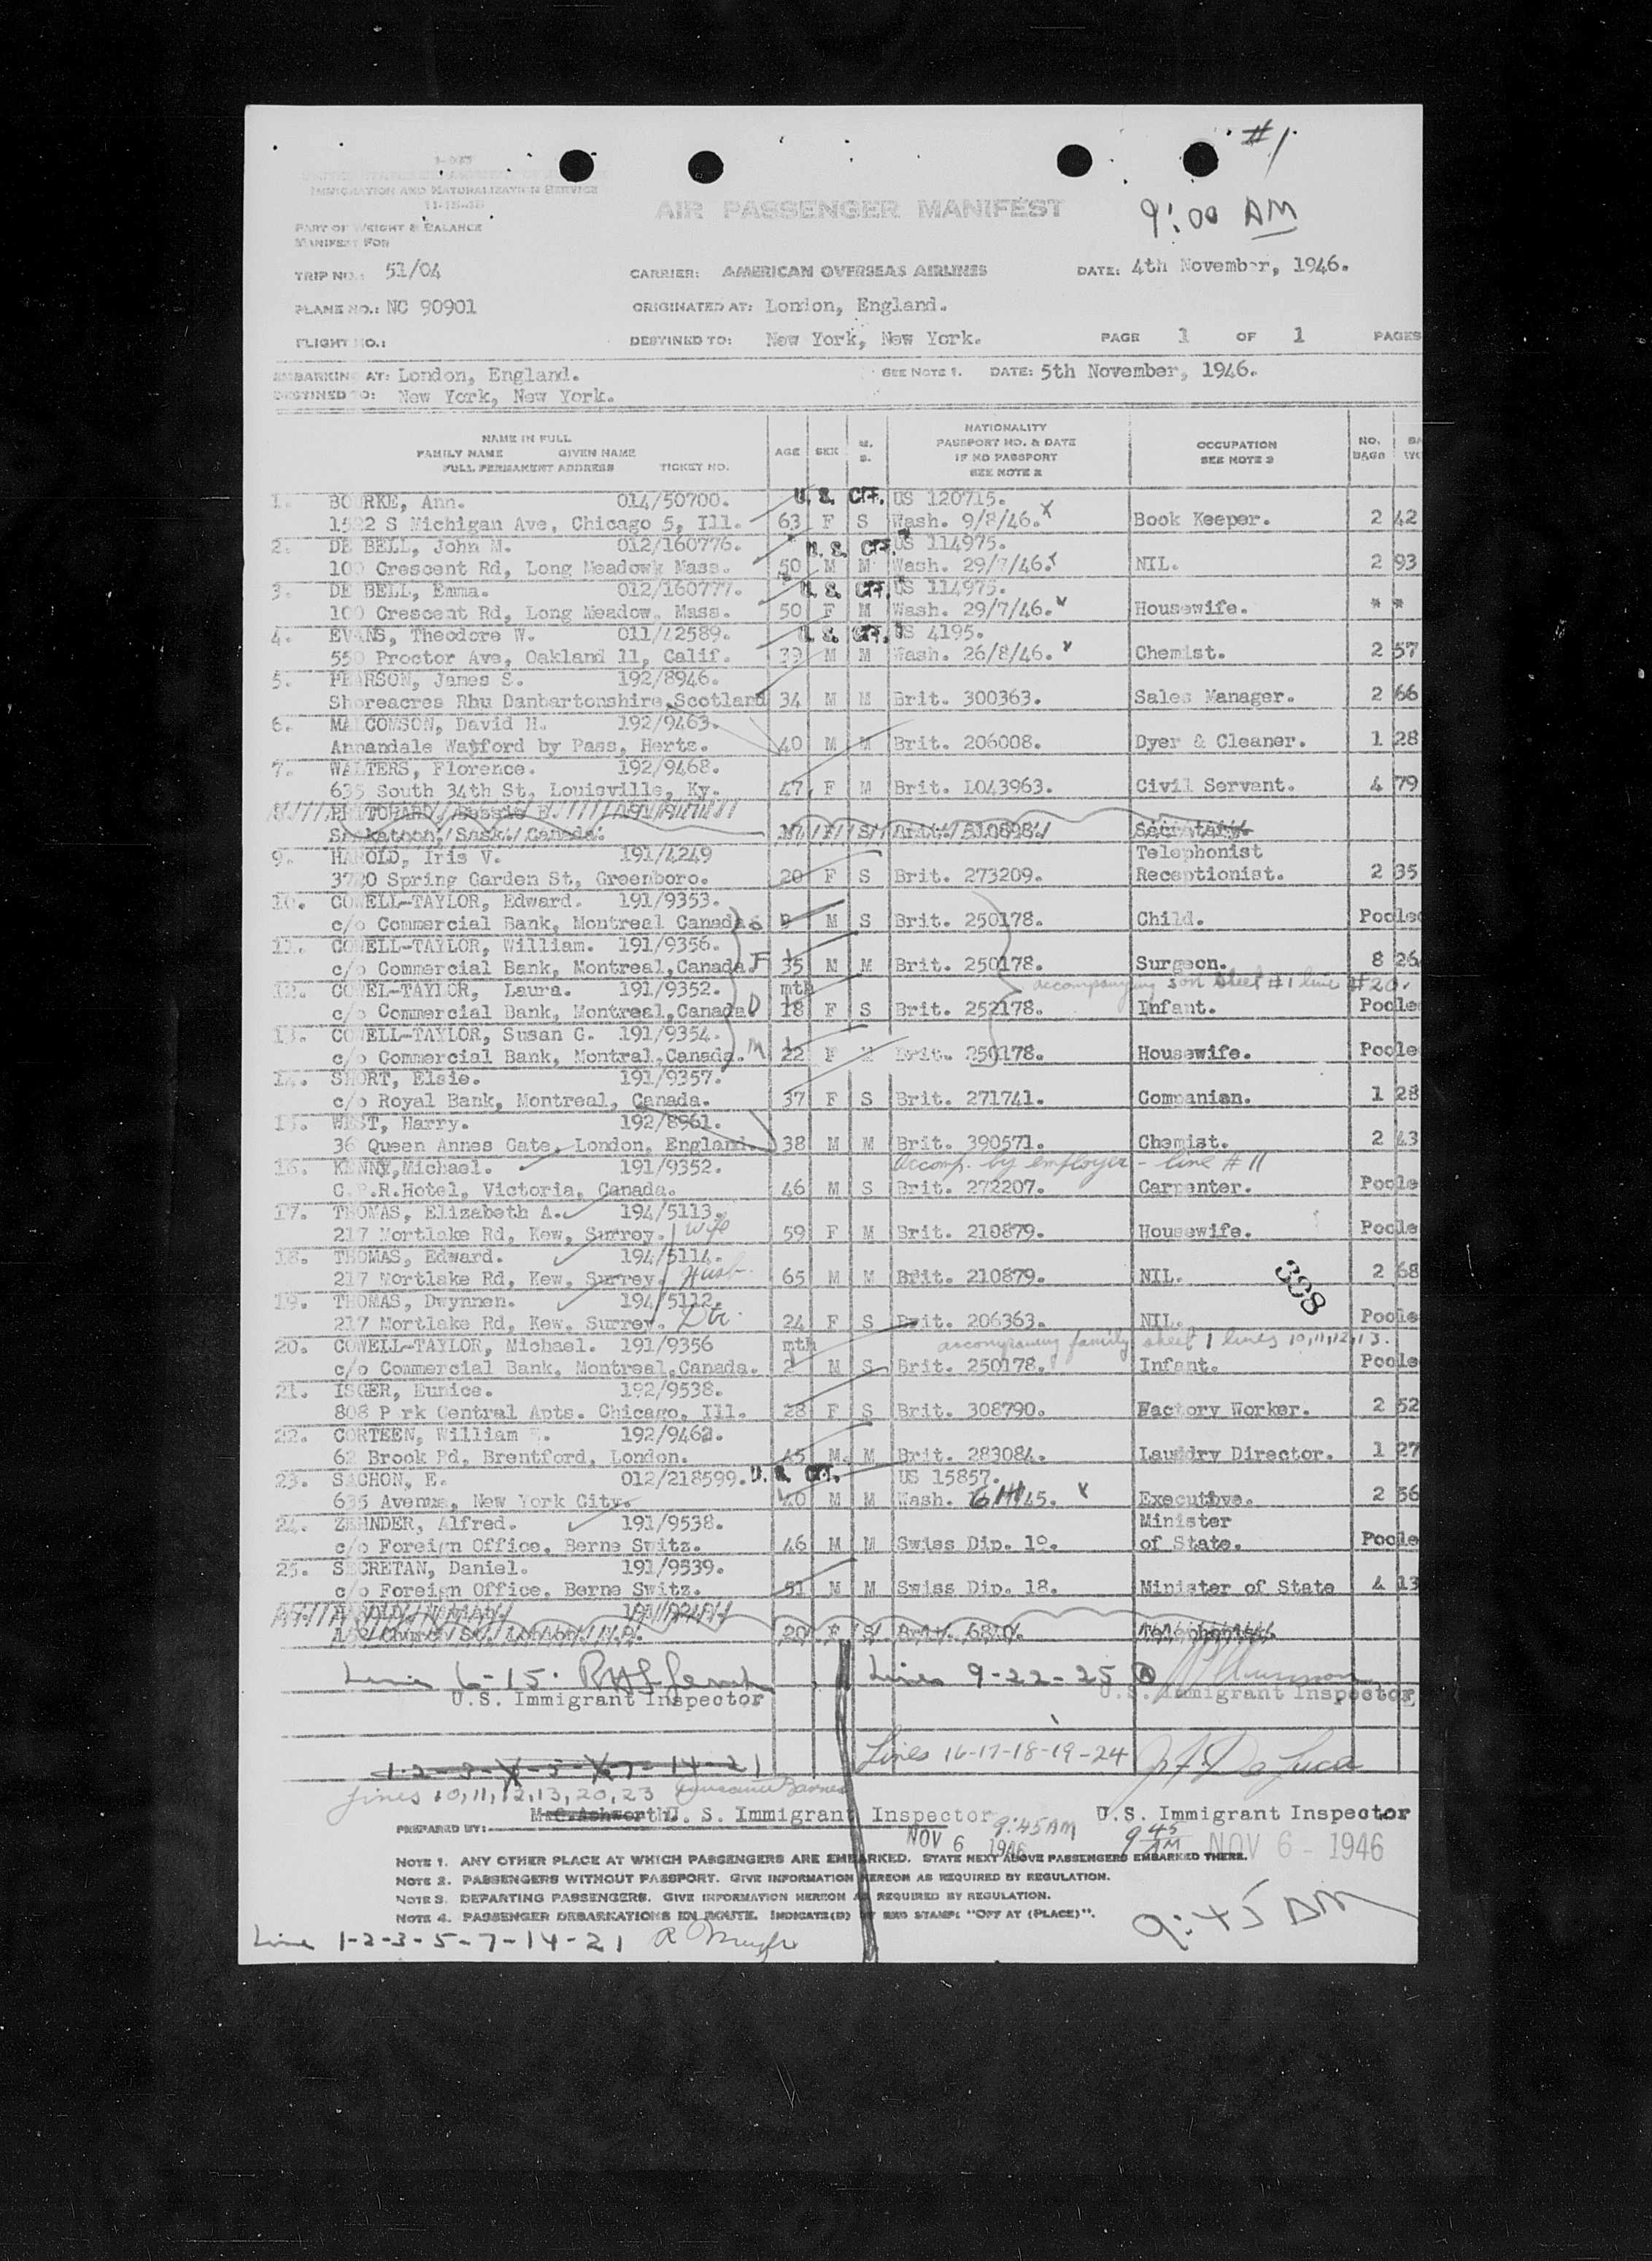 #1
IMMIGRATION AND NATURALIZATION SERVICE
AIR PASSENGER MANIFEST
9:00 AM
PART OF WEIGHT & BALANCE
MANIFEST FOR
TRIP NO.: 51/04 CARRIER: AMERICAN OVERSEAS AIRLINES DATE: 4th November, 1946.
PLANE NO.: NC 90901 ORIGINATED AT: London, England.
FLIGHT NO.: DESTINED TO: New York, New York. PAGE 1 OF 1 PAGES
EMBARKING AT: London, England. SEE NOTE 1. DATE: 5th November, 1946.
DESTINED TO: New York, New York.
NAME IN FULL
FAMILY NAME GIVEN NAME
FULL PERMANENT ADDRESS TICKET NO.
AGE SEX M. S.
NATIONALITY
PASSPORT NO. & DATE
IF NO PASSPORT
SEE NOTE 2
OCCUPATION
SEE NOTE 3
NO. BAGS
1. BOURKE, Ann. 014/50700. U. S. CIT. US 120715.
1522 S Michigan Ave, Chicago 5, Ill. 63 F S Wash. 9/8/46. Book Keeper. 2 42
2. DE BELL, John M. 012/160776. U. S. CIT. US 114975.
100 Crescent Rd, Long Meadowk Mass. 50 M M Wash. 29/7/46. NIL. 2 93
3. DE BELL, Emma. 012/160777. U. S. CIT. US 114975.
100 Crescent Rd, Long Meadow, Mass. 50 F M Wash. 29/7/46. Housewife. * *
4. EVANS, Theodore W. 011/42589. U. S. CIT. US 4195.
550 Proctor Ave, Oakland 11, Calif. 39 M M Wash. 26/8/46. Chemist. 2 57
5. PEARSON, James S. 192/8946.
Shoreacres Rhu Danbartonshire, Scotland 34 M M Brit. 300363. Sales Manager. 2 66
6. MALCOMSON, David H. 192/9463.
Annandale Watford by Pass, Herts. 40 M M Brit. 206008. Dyer & Cleaner. 1 28
7. WALTERS, Florence. 192/9468.
635 South 34th St, Louisville, Ky. 47 F M Brit. L043963. Civil Servant. 4 79
8. PRITCHARD
Saskatoon, Sask. Canada. F S Secretary.
9. HAROLD, Iris V. 191/4249 Telephonist
3720 Spring Garden St, Greenboro. 20 F S Brit. 273209. Receptionist. 2 35
10. COWELL-TAYLOR, Edward. 191/9353.
c/o Commercial Bank, Montreal Canada S M S Brit. 250178. Child. Poole
11. COWELL-TAYLOR, William. 191/9356.
c/o Commercial Bank, Montreal, Canada. F 35 M M Brit. 250178. Surgeon. 8 26
accompanying son sheet #1 line #20.
12. COWEL-TAYLOR, Laura. 191/9352. mth
c/o Commercial Bank, Montreal, Canada D 18 F S Brit. 252178. Infant. Poole
13. COWELL-TAYLOR, Susan G. 191/9354.
c/o Commercial Bank, Montral, Canada. M 22 F M Brit. 250178. Housewife. Poole
14. SHORT, Elsie. 191/9357.
c/o Royal Bank, Montreal, Canada. 37 F S Brit. 271741. Companian. 1 28
15. WEST, Harry. 192/8961.
36 Queen Annes Gate, London, England. 38 M M Brit. 390571. Chemist. 2 43
Accomp. by employer - line #11
16. KENNY, Michael. 191/9352.
C.P.R. Hotel, Victoria, Canada. 46 M S Brit. 272207. Carpenter. Poole
17. THOMAS, Elizabeth A. 194/5113. Wife
217 Mortlake Rd, Kew, Surrey. 59 F M Brit. 210879. Housewife. Poole
18. THOMAS, Edward. 194/5114. Husb.
217 Mortlake Rd, Kew, Surrey. 65 M M Brit. 210879. NIL. 2 68
388
19. THOMAS, Dwynnen. 194/5112.
217 Mortlake Rd, Kew, Surrey. Dtr 24 F S Brit. 206363. NIL. Poole
accompanying family sheet 1 lines 10,11,12,13.
20. COWELL-TAYLOR, Michael. 191/9356 mth
c/o Commercial Bank, Montreal, Canada. 2 M S Brit. 250178. Infant. Poole
21. ISGER, Eunice. 192/9538.
808 Park Central Apts. Chicago, Ill. 28 F S Brit. 308790. Factory Worker. 2 52
22. CORTEEN, William 192/9462.
62 Brook Rd, Brentford, London. 45 M M Brit. 283084. Laundry Director. 1 27
23. SACHON, E. 012/218599. U. S. CIT. US 15857.
635 Avenue, New York City. 40 M M Wash. Executive. 2 56
24. ZEHNDER, Alfred. 191/9538. Minister
c/o Foreign Office, Berne Switz. 46 M M Swiss Dip. 10. of State. Poole
25. SECRETAN, Daniel. 191/9539.
c/o Foreign Office, Berne Switz. 51 M M Swiss Dip. 18. Minister of State 4 13
20 F S Telephonist.
Lines 6-15. Lines 9-22-25
U.S. Immigrant Inspector U.S. Immigrant Inspector
Lines 16-17-18-19-24 De Luca
Lines 10,11,12,13,20,23 Barnes
PREPARED BY: U. S. Immigrant Inspector U.S. Immigrant Inspector
NOV 6 1946 9:45 AM 9 45 AM NOV 6 - 1946
NOTE 1. ANY OTHER PLACE AT WHICH PASSENGERS ARE EMBARKED. STATE NEXT ABOVE PASSENGERS EMBARKED THERE.
NOTE 2. PASSENGERS WITHOUT PASSPORT. GIVE INFORMATION HEREON AS REQUIRED BY REGULATION.
NOTE 3. DEPARTING PASSENGERS. GIVE INFORMATION HEREON AS REQUIRED BY REGULATION.
NOTE 4. PASSENGER DEBARKATIONS EN ROUTE. INDICATE(D) BY RED STAMP: "OFF AT (PLACE)".
9:45 AM
Line 1-2-3-5-7-14-21